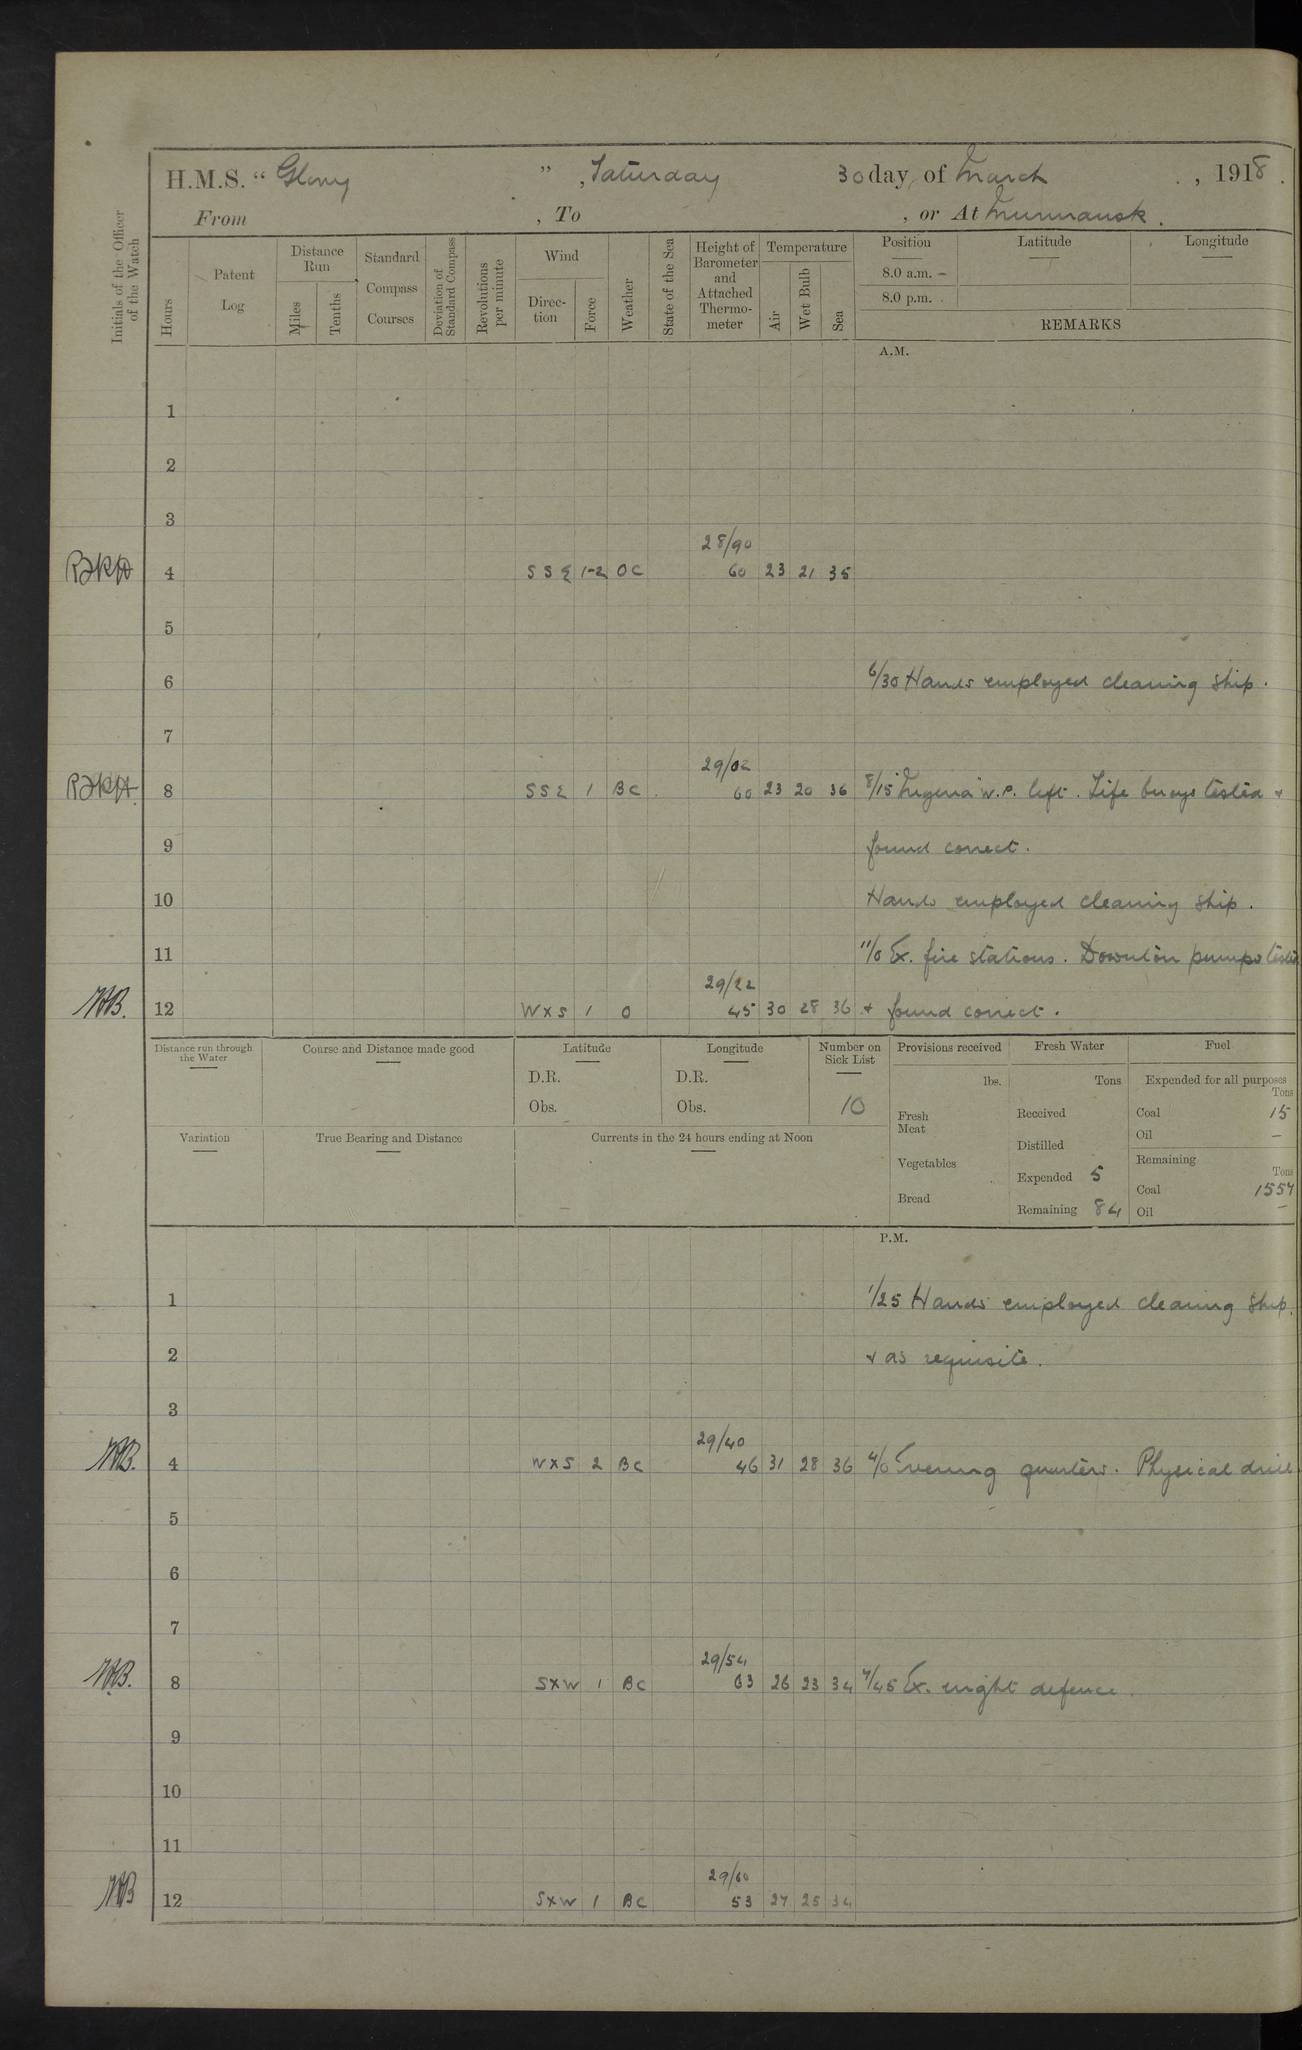 H.M.S. "Glory", Saturday 30 day of March, 1918.
From , To , or At Murmansk.
Initials of the Officer of the Watch
Hours
Patent Log
Distance Run
Miles
Tenths
Standard Compass Courses
Deviation of Standard Compass
Revolutions per minute
Wind
Direc-tion
Force
Weather
State of the Sea
Height of Barometer and Attached Thermo-meter
Temperature
Air
Wet Bulb
Sea
Position
8.0 a.m.
8.0 p.m.
Latitude
Longitude
REMARKS
A.M.
1
2
3
28/90
4 SSE 1-2 OC 60 23 21 35
5
6 6/30 Hands employed cleaning ship.
7
29/02
8 SSE 1 BC 60 23 20 36 8/15 W.P. left. Life buoys tested &
9 found correct.
10 Hands employed cleaning ship.
11 11/0 Ex. fire stations. Downton pumps tested
29/22
WB. 12 WXS 1 O 45 30 28 36 & found correct.
Distance run through the Water
Course and Distance made good
Latitude
D.R.
Obs.
Longitude
D.R.
Obs.
Number on Sick List
10
Provisions received
lbs.
Fresh Meat
Vegetables
Bread
Fresh Water
Tons
Received
Distilled
Expended 5
Remaining 84
Fuel
Expended for all purposes
Tons
Coal 15
Oil –
Remaining
Tons
Coal 1557
Oil –
Variation
True Bearing and Distance
Currents in the 24 hours ending at Noon
P.M.
1 1/25 Hands employed cleaning ship.
2 & as requisite.
3
29/40
WB. 4 WXS 2 BC 46 31 28 36 4/0 Evening quarters. Physical drill.
5
6
7
29/54
WB. 8 SXW 1 BC 63 26 23 34 7/45 Ex. night defence.
9
10
11
29/60
WB 12 SXW 1 BC 53 27 25 34